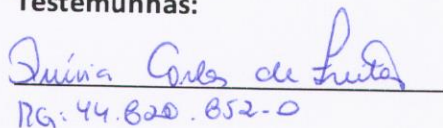 Testemunhas:
de Freitas
RG: 44.820.852-0